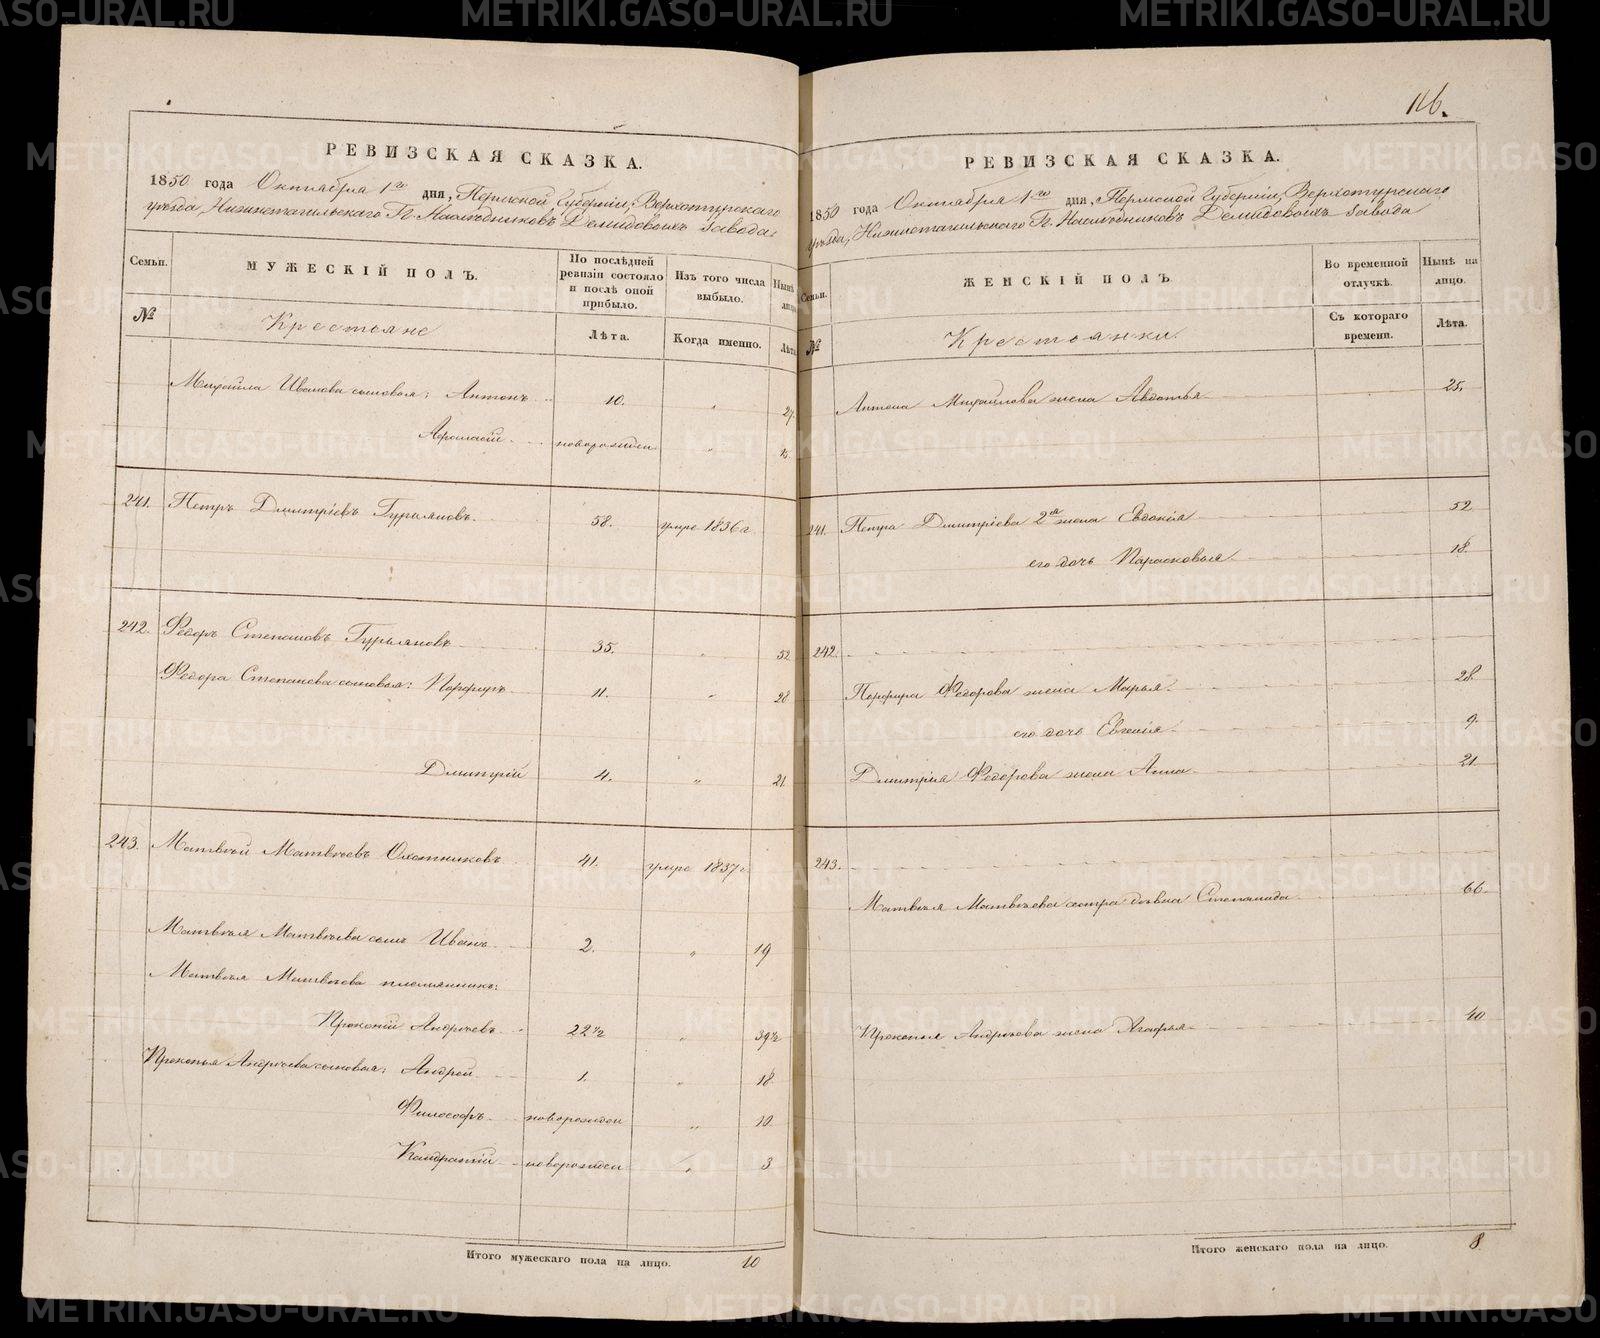 116.
РЕВИЗСКАЯ СКАЗКА.
1850 года Октября 1го дня, Пермской Губерніи, Верхотурскаго
уѣзда, Нижнетагильскаго Гг. Наслѣдниковъ Демидовыхъ завода
Семьи. МУЖЕСКІЙ ПОЛЪ. По послѣдней ревизіи состояло и послѣ оной прибыло. Изъ того числа выбыло. Нынѣ на лицо.
№ Крестьяне Лѣта. Когда именно. Лѣта.
Михайла Иванова сыновья: Антонъ 10. " 27.
Афанасій новорожден "
241. Петръ Дмитріевъ Гурьяновъ. 58. умре 1836 г.
242. Ѳедоръ Степановъ Гурьяновъ 35. " 52
Ѳедора Степанова сыновья: Порфиръ 11. " 28
Дмитрій 4. " 21.
243. Матвѣй Матвѣевъ Охотниковъ 41. умре 1837 г.
Матвѣя Матвѣева сынъ Иванъ 2. " 19
Матвѣя Матвѣева племянникъ:
Прокопій Андрѣевъ 22½ " 39½
Прокопья Андрѣева сыновья: Андрей 1. " 18.
Философъ новорожден " 10.
Кондратій новорожден " 3
Итого мужескаго пола на лицо. 10
РЕВИЗСКАЯ СКАЗКА.
1850 года Октября 1го дня, Пермской Губерніи, Верхотурскаго
уѣзда, Нижнетагильскаго Гг. Наслѣдниковъ Демидовыхъ завода
Семьи. ЖЕНСКІЙ ПОЛЪ Во временной отлучкѣ. Нынѣ на лицо.
№ Крестьянки. Съ котораго времени. Лѣта.
Антона Михайлова жена Авдотья 25.
241. Петра Дмитріева 2я жена Евдокія 52.
его дочь Парасковья 18.
242.
Порфира Ѳедорова жена Марья. 28.
его дочь Евгенія 9.
Дмитрія Ѳедорова жена Анна 21.
243.
Матвѣя Матвѣева сестра дѣвка Степанида 66.
Прокопья Андрѣева жена Агафья 40
Итого женскаго пола на лицо. 8.
METRIKI.GASO-URAL.RU